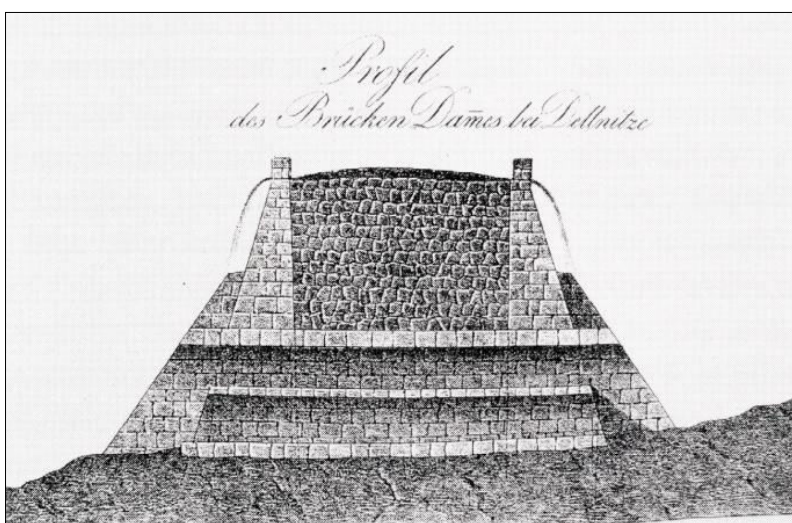 Profil
des Brücken Dam̄es bei Dellnitze